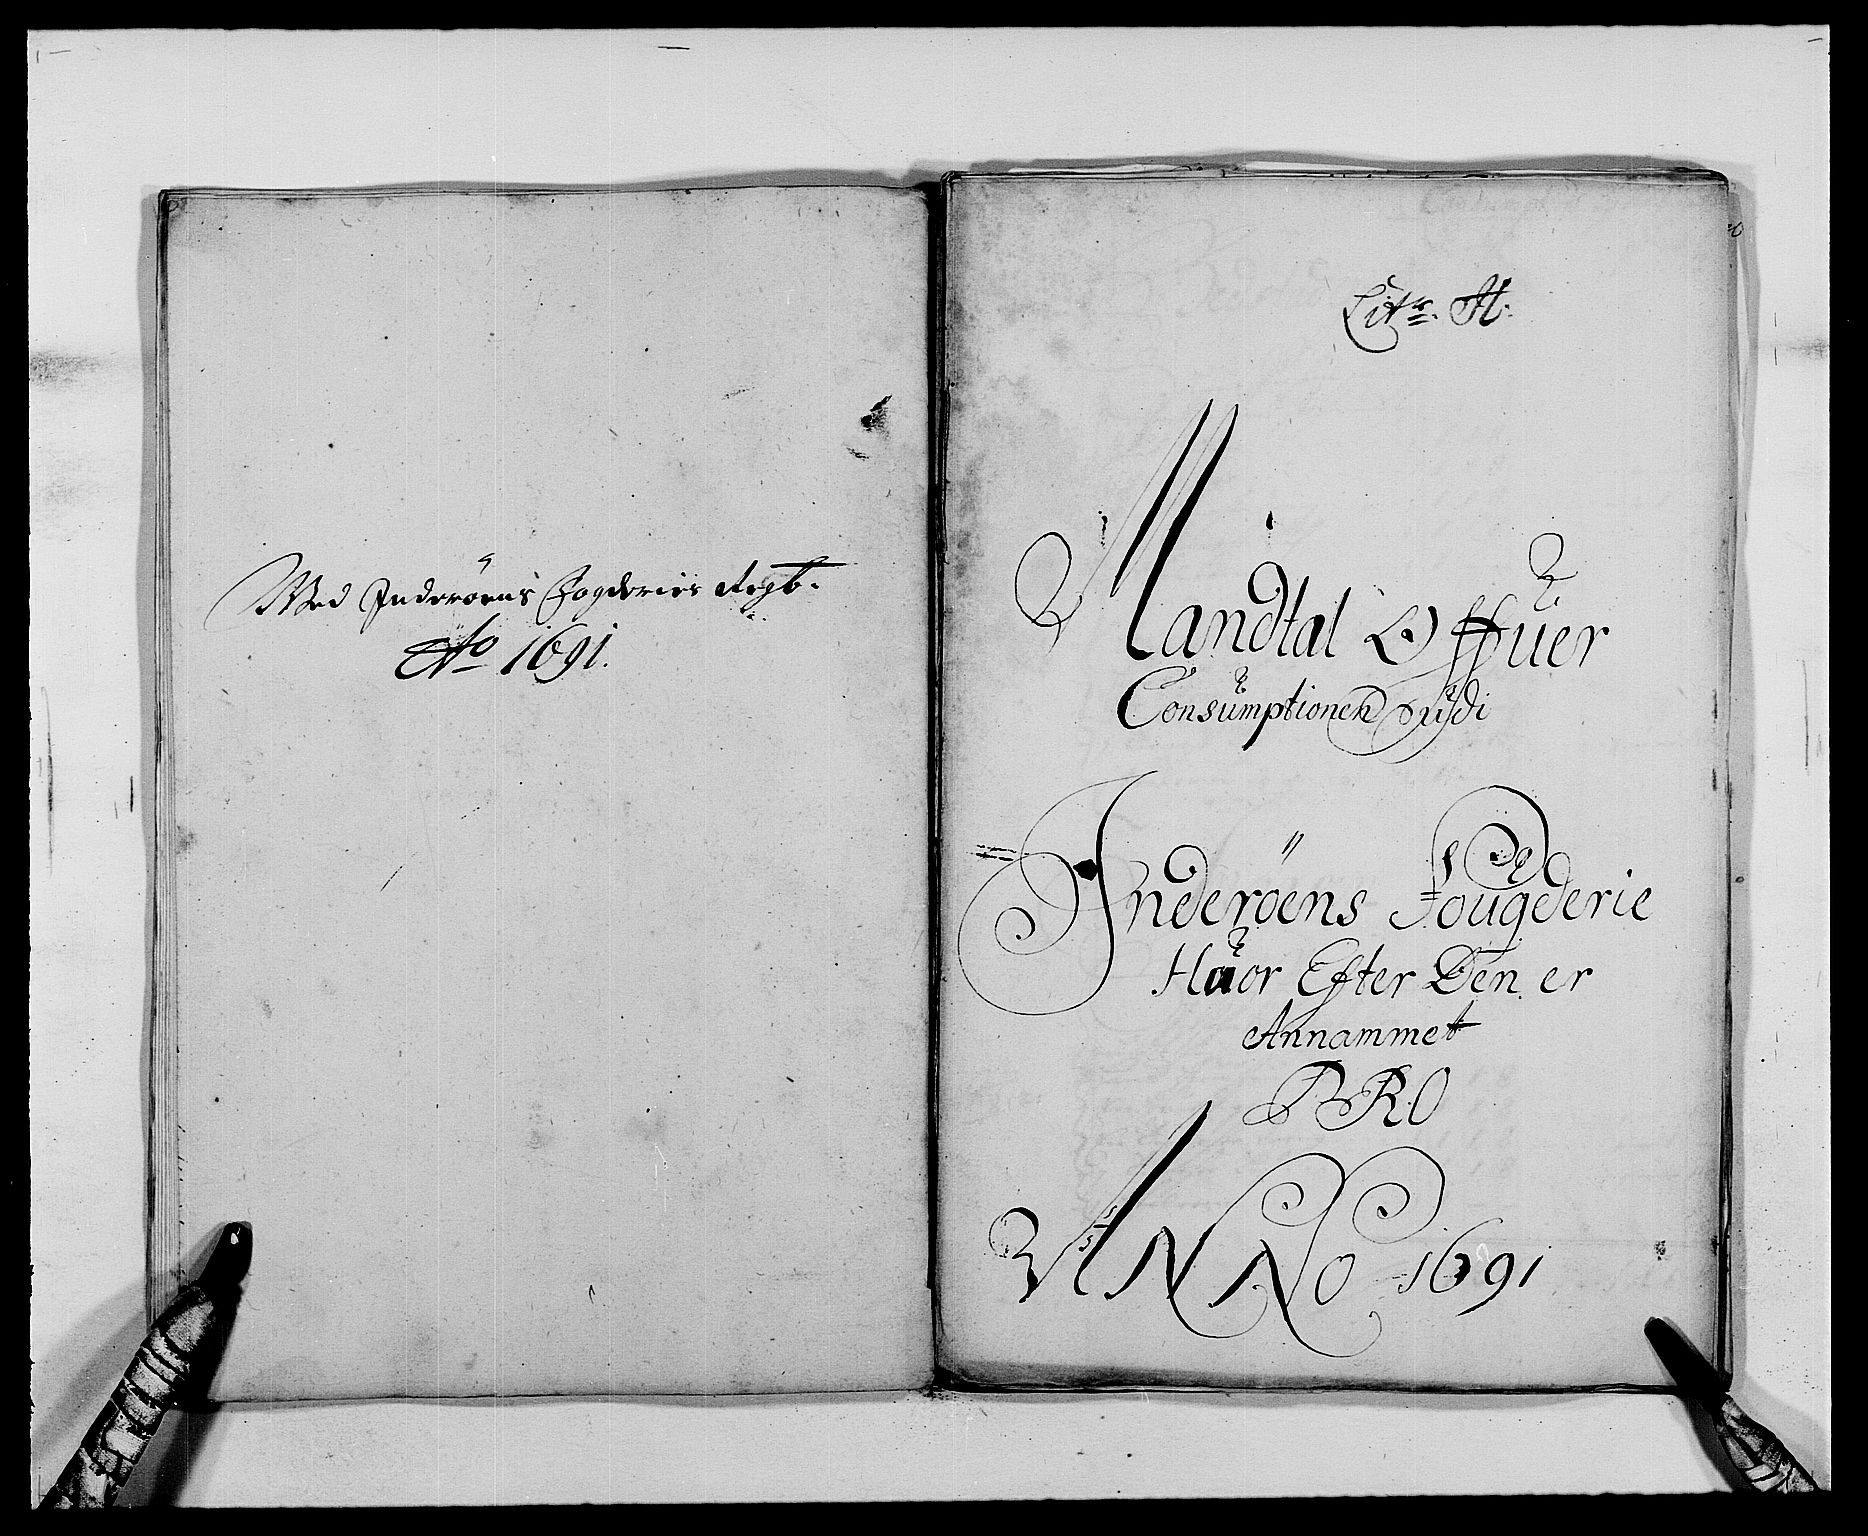 Med Inderöens Fogderies Regb.
Ao 1691.
Litr. H.
Mandtal Offuer
Consumptionen Udi
Inderöens Fougderie
Huor Efter Den er
Annammet
PRO
ANNO 1691